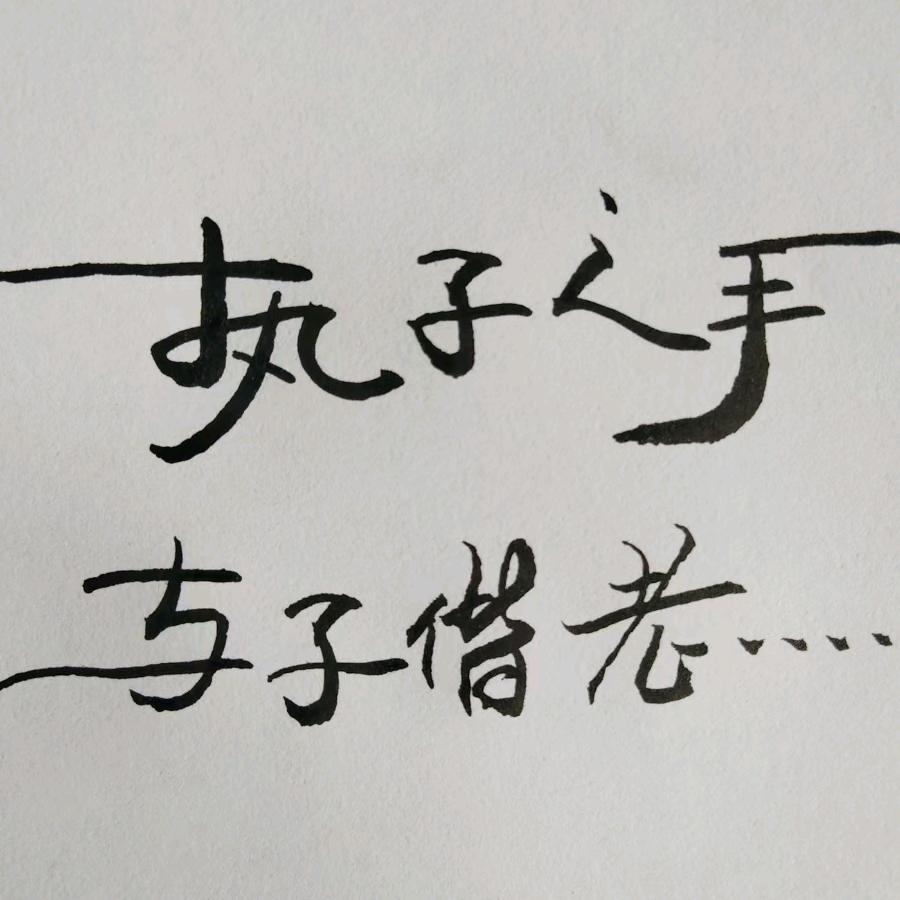 执子之手
与子偕老·····